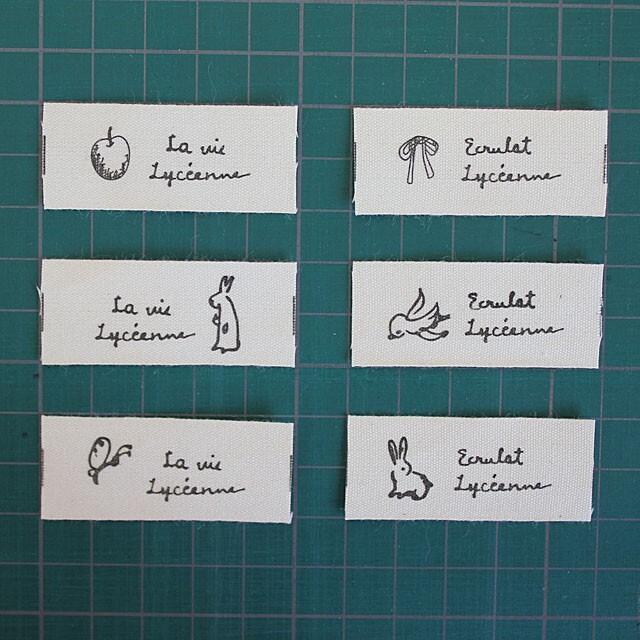 La vie
Lycéenne
Ecrulat
Lycéenne
La vie
Lycéenne
Ecrulat
Lycéenne
La vie
Lycéenne
Ecrulat
Lycéenne